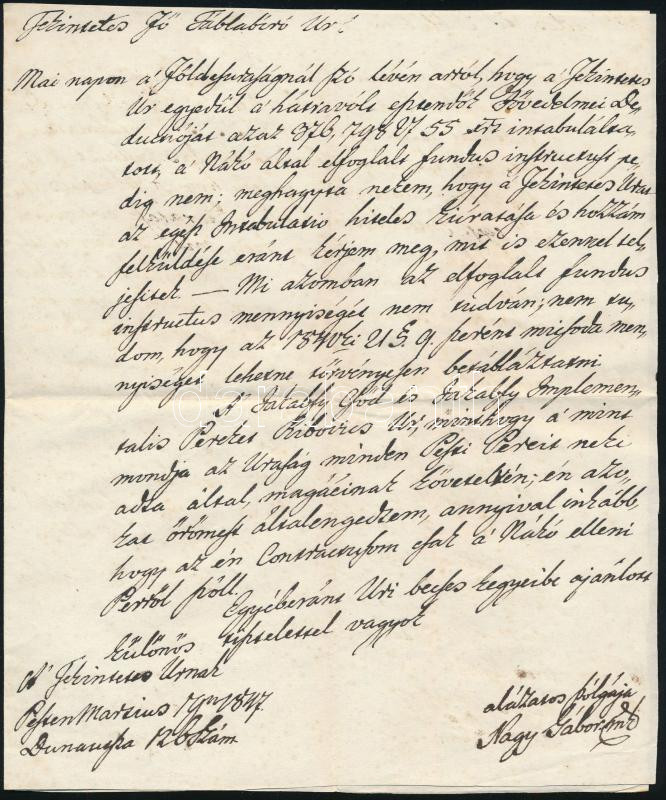 Tekintetes Fő Táblabiró Ur!
Mai napon a' Földesuraságnál szó lévén arról, hogy a' Tekintetes
Ur egyedűl a' hátravólt esztendők Jövedelmei De-
ductioját azaz 376,798 f 55 xr intabulálta-
tott, a' Nákó által elfoglalt fundus instructust pe-
dig nem; meghagyta nekem, hogy a' Tekintetes Urat
az egész Intabulatio hiteles kiiratása és hozzám
felküldése eránt kérjem meg, mit is ezennel tel-
jesitek — Mi azomban az elfoglalt fundus
instructus mennyiségét nem tudván; nem tu-
dom, hogy az 1840ki 21 §. 9. szerént micsoda men-
nyiséget lehetne törvényesen betábláztatni
A' Satabfy és Satabfy Implemen-
talis Pereket Ur, minthogy a' mint
mondja az Uraság minden Pesti Pereit neki
adta által, magáéinak követelvén; én azo-
kat örömest általengedtem, annyival inkább,
hogy az én Contractusom csak a' Nákó elleni
Perről szóll.
Egyéberánt Uri becses kegyeibe ajánlott
külőnös tisztelettel vagyok
A' Tekintetes Urnak
Pesten Martius 17n 1847.
Dunautsza 126 szám
alázatos szólgája
Nagy Gábor mk